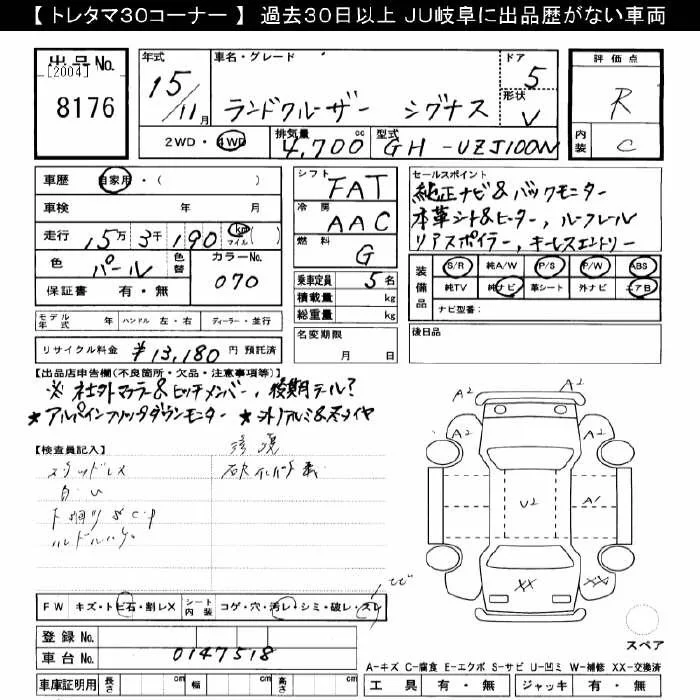 【 トレタマ30コーナー 】 過去30日以上 JU岐阜に出品歴がない車両
出品No.
[2004]
8176
年式
15/11月
車名・グレード
ランドクルーザー シグナス
ドア
5
形状
V
2WD・4WD
排気量
4,700 cc
型式
GH-UZJ100W
評価点
R
内装
C
車歴 自家用・( )
車検 年 月
走行 15万3千190 km マイル ( )
色 パール 色替 カラーNo. 070
保証書 有・無
シフト FAT
冷房 AAC
燃料 G
乗車定員 5名
積載量 kg
総重量 kg
名変期限
月 日
セールスポイント
純正ナビ&バックモニター
本革シート&ヒーター, ルーフレール
リアスポイラー, キーレスエントリー
装備品
S/R 純A/W P/S P/W ABS
純TV 純ナビ 革シート 外ナビ エアB
ナビ型番:
後日品
モデル年式 年 ハンドル 左・右 ディーラー・並行
リサイクル料金 ¥13,180 円 預託済
【出品店申告欄(不良箇所・欠品・注意事項等)】
※ 社外マフラー&ヒッチメンバー, 後期テール?
★アルパインフリップダウンモニター ★外アルミ&冬タイヤ
【検査員記入】
スタッドレス
FW キズ・トビ石・割レX シート内装 コゲ・穴・汚レ・シミ・破レ・スレ
登録No.
車台No. 0147518
車庫証明用 長さ cm 幅 cm 高さ cm
A2
A2
A2
U2
A1
XX
スペア
A-キズ C-腐食 E-エクボ S-サビ U-凹ミ W-補修 XX-交換済
工具 有・無 ジャッキ 有・無